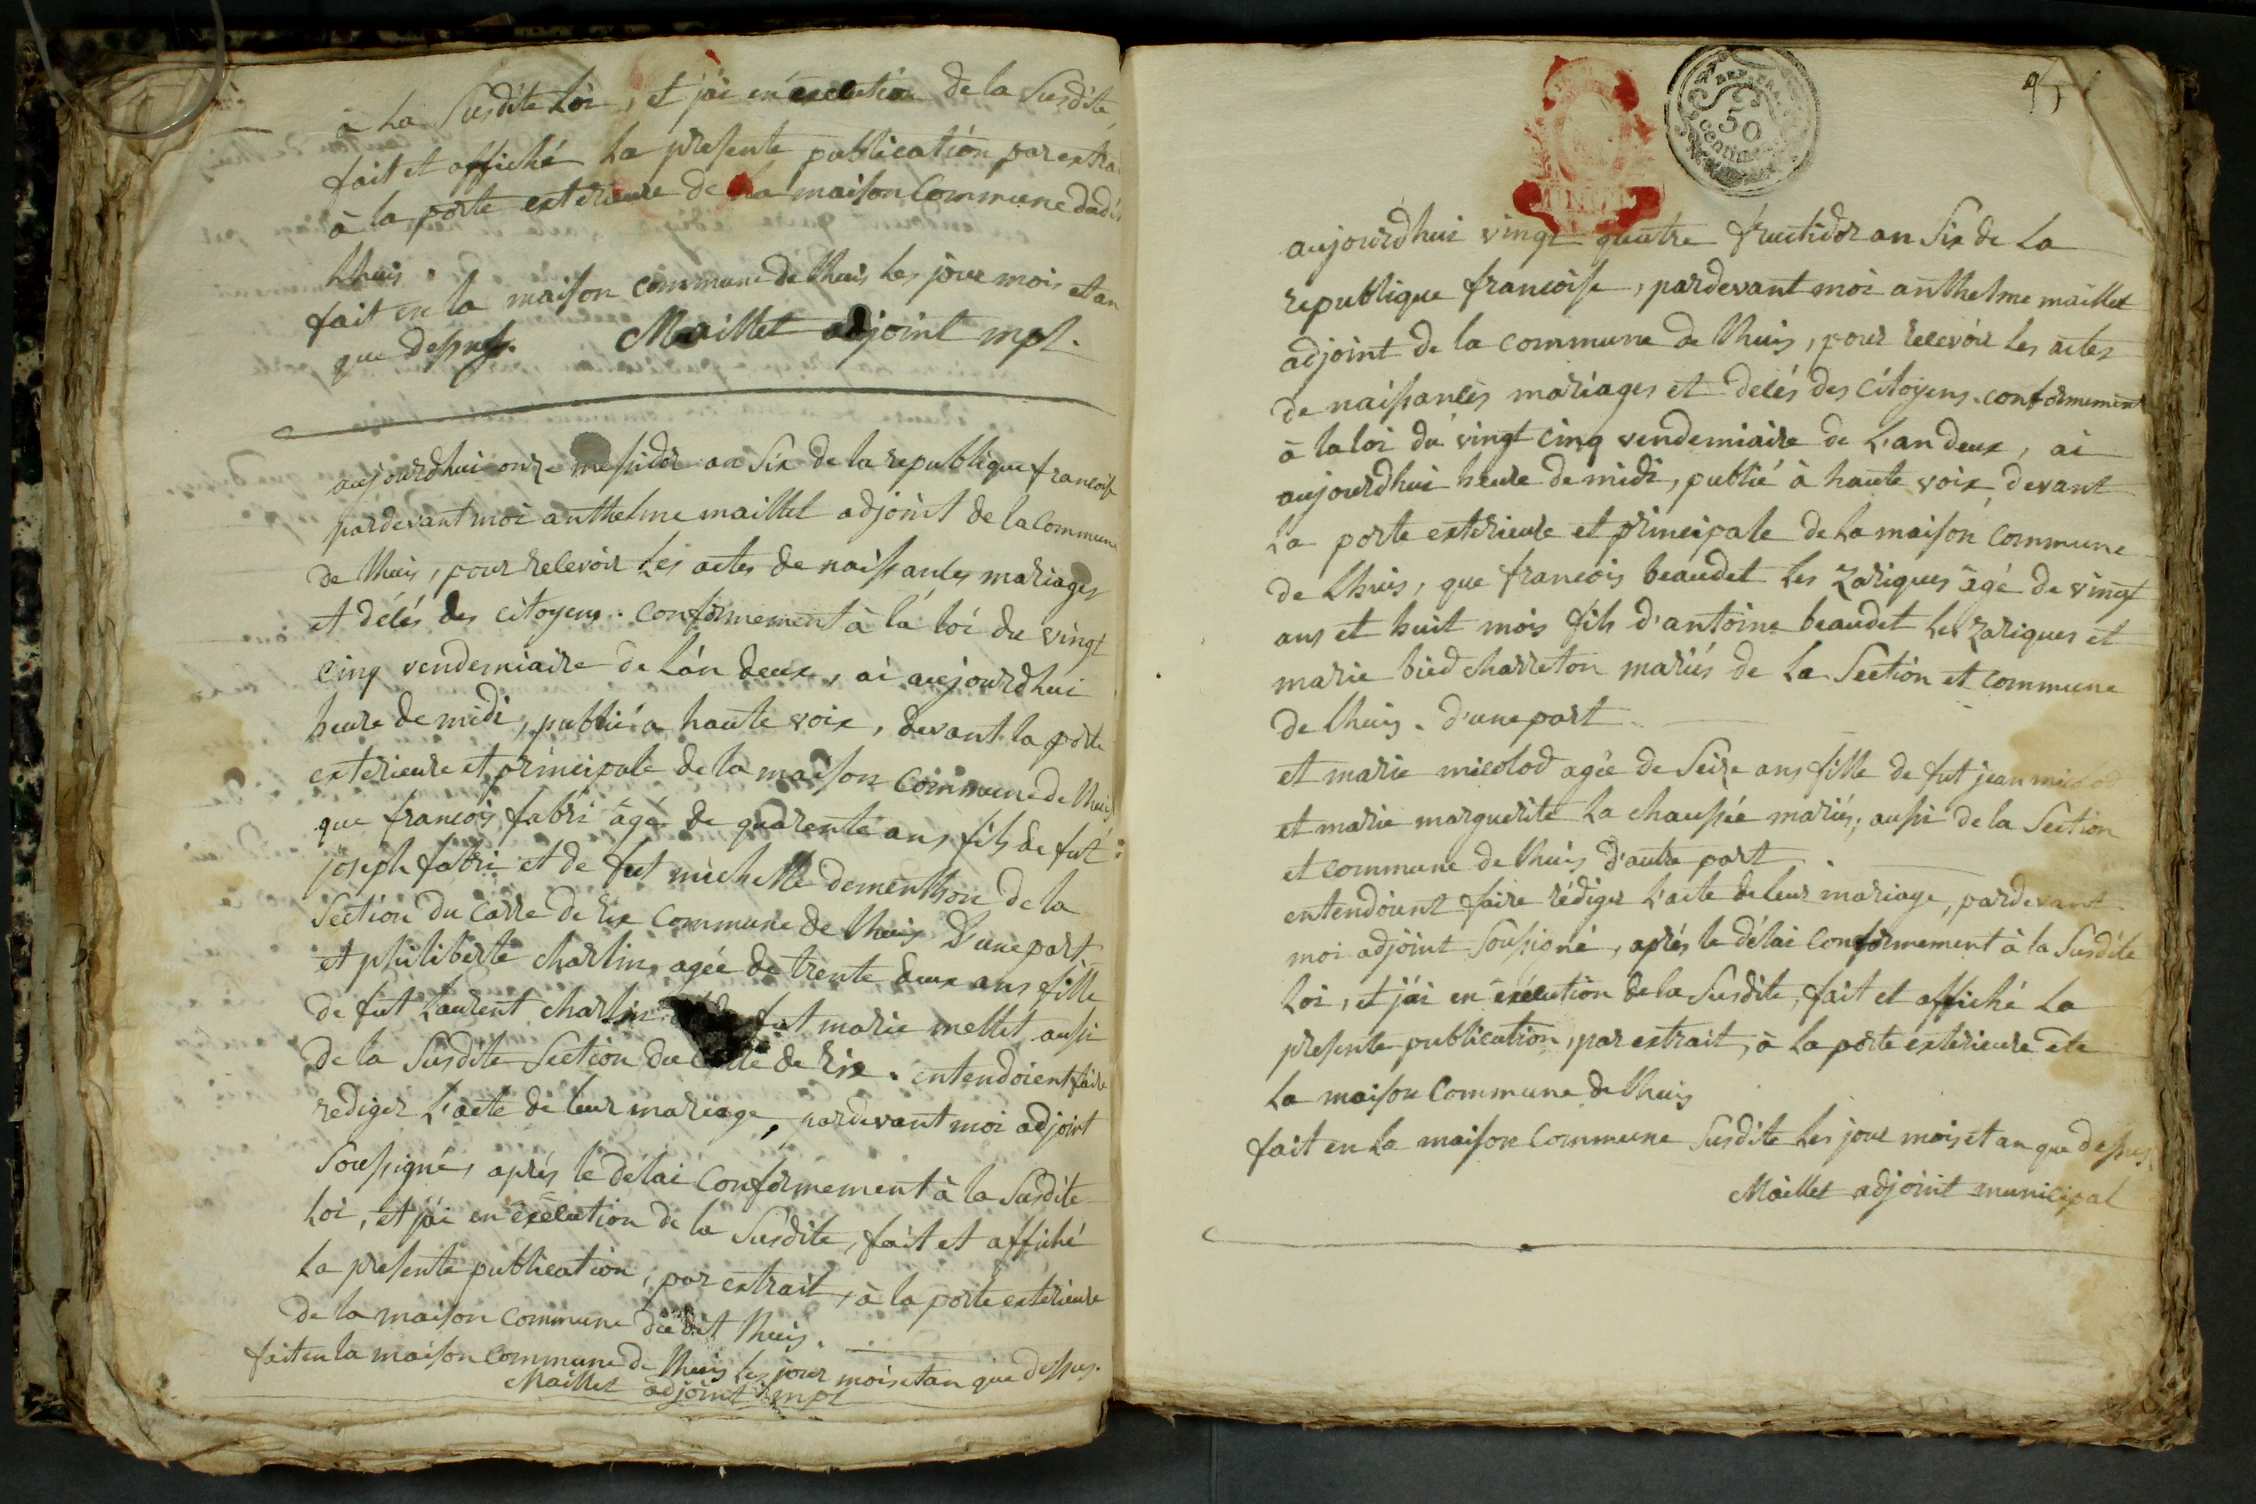 à La Susdite Loi, et j'ai en éxécution de la Susdite
fait et affiché La présente publication par extra
à la porte exterieure de La maison Commune dudit
Lhuis.
fait en la maison commune de Lhuis Les jour mois et an
que dessus. Maillet adjoint mpl.
aujourdhui onze messidor an Six de la republique francoise
pardevant moi anthelme maillet adjoint de la Commune
de Lhuis, pour recevoir Les actes de naissances mariages
et décés des citoyens. conformement à la loi du vingt
cinq vendemiaire de L'an deux, ai aujourdhui
heure de midi, publié à haute voix, devant la porte
exterieure et principale de la maison Commune de Lhuis
que francois fabri âgé de quarente ans fils de fut
joseph fabri et de fut michelle dementhon de la
Section du Carre de Rix Commune de Lhuis D'une part
et philiberte charlin, agée de trente deux ans fille
de fut Laurent charlin fut marie mellet aussi
de la Susdite Section du de Rix. entendoient faire
rediger L'acte de leur mariage, pardevant moi adjoint
Soussigné, aprés le délai Conformement à la Susdite
Loi, et j'ai en éxécution de la Susdite, fait et affiché
La presente publication, par extrait, à la porte exterieure
de la maison Commune dudit Lhuis.
fait en la maison Commune de Lhuis Les jour mois et an que dessus.
Maillet adjoint mpl
95
REP. FRA.
50
centimes
aujourdhui vingt quatre fructidor an Six de La
republique francoise, pardevant moi anthelme maillet
adjoint de la commune de Lhuis, pour recevoir Les actes
de naissances mariages et décés des citoyens. conformement
à la loi du vingt cinq vendemiaire de L'an deux, ai
aujourdhui heure de midi, publié à haute voix, devant
La porte exterieure et principale de La maison Commune
de Lhuis, que francois beaudet Les Zariques âgé de vingt
ans et huit mois fils d'antoine beaudet Les Zariques et
marie bied charreton mariés de La Section et commune
de Lhuis. d'une part
et marie micolod agée de Seize ans fille de fut jean micolod
et marie marguerite La chaussée mariés, aussi de la Section
et commune de Lhuis d'autre part.
entendoient faire rédiger L'acte de leur mariage, pardevant
moi adjoint Soussigné, aprés le délai Conformement à la Susdite
Loi, et j'ai en éxécution de la Susdite, fait et affiché La
presente publication, par extrait, à La porte exterieure de
La maison Commune de Lhuis
fait en La maison Commune Susdite Les jour mois et an que dessus.
Maillet adjoint municipal